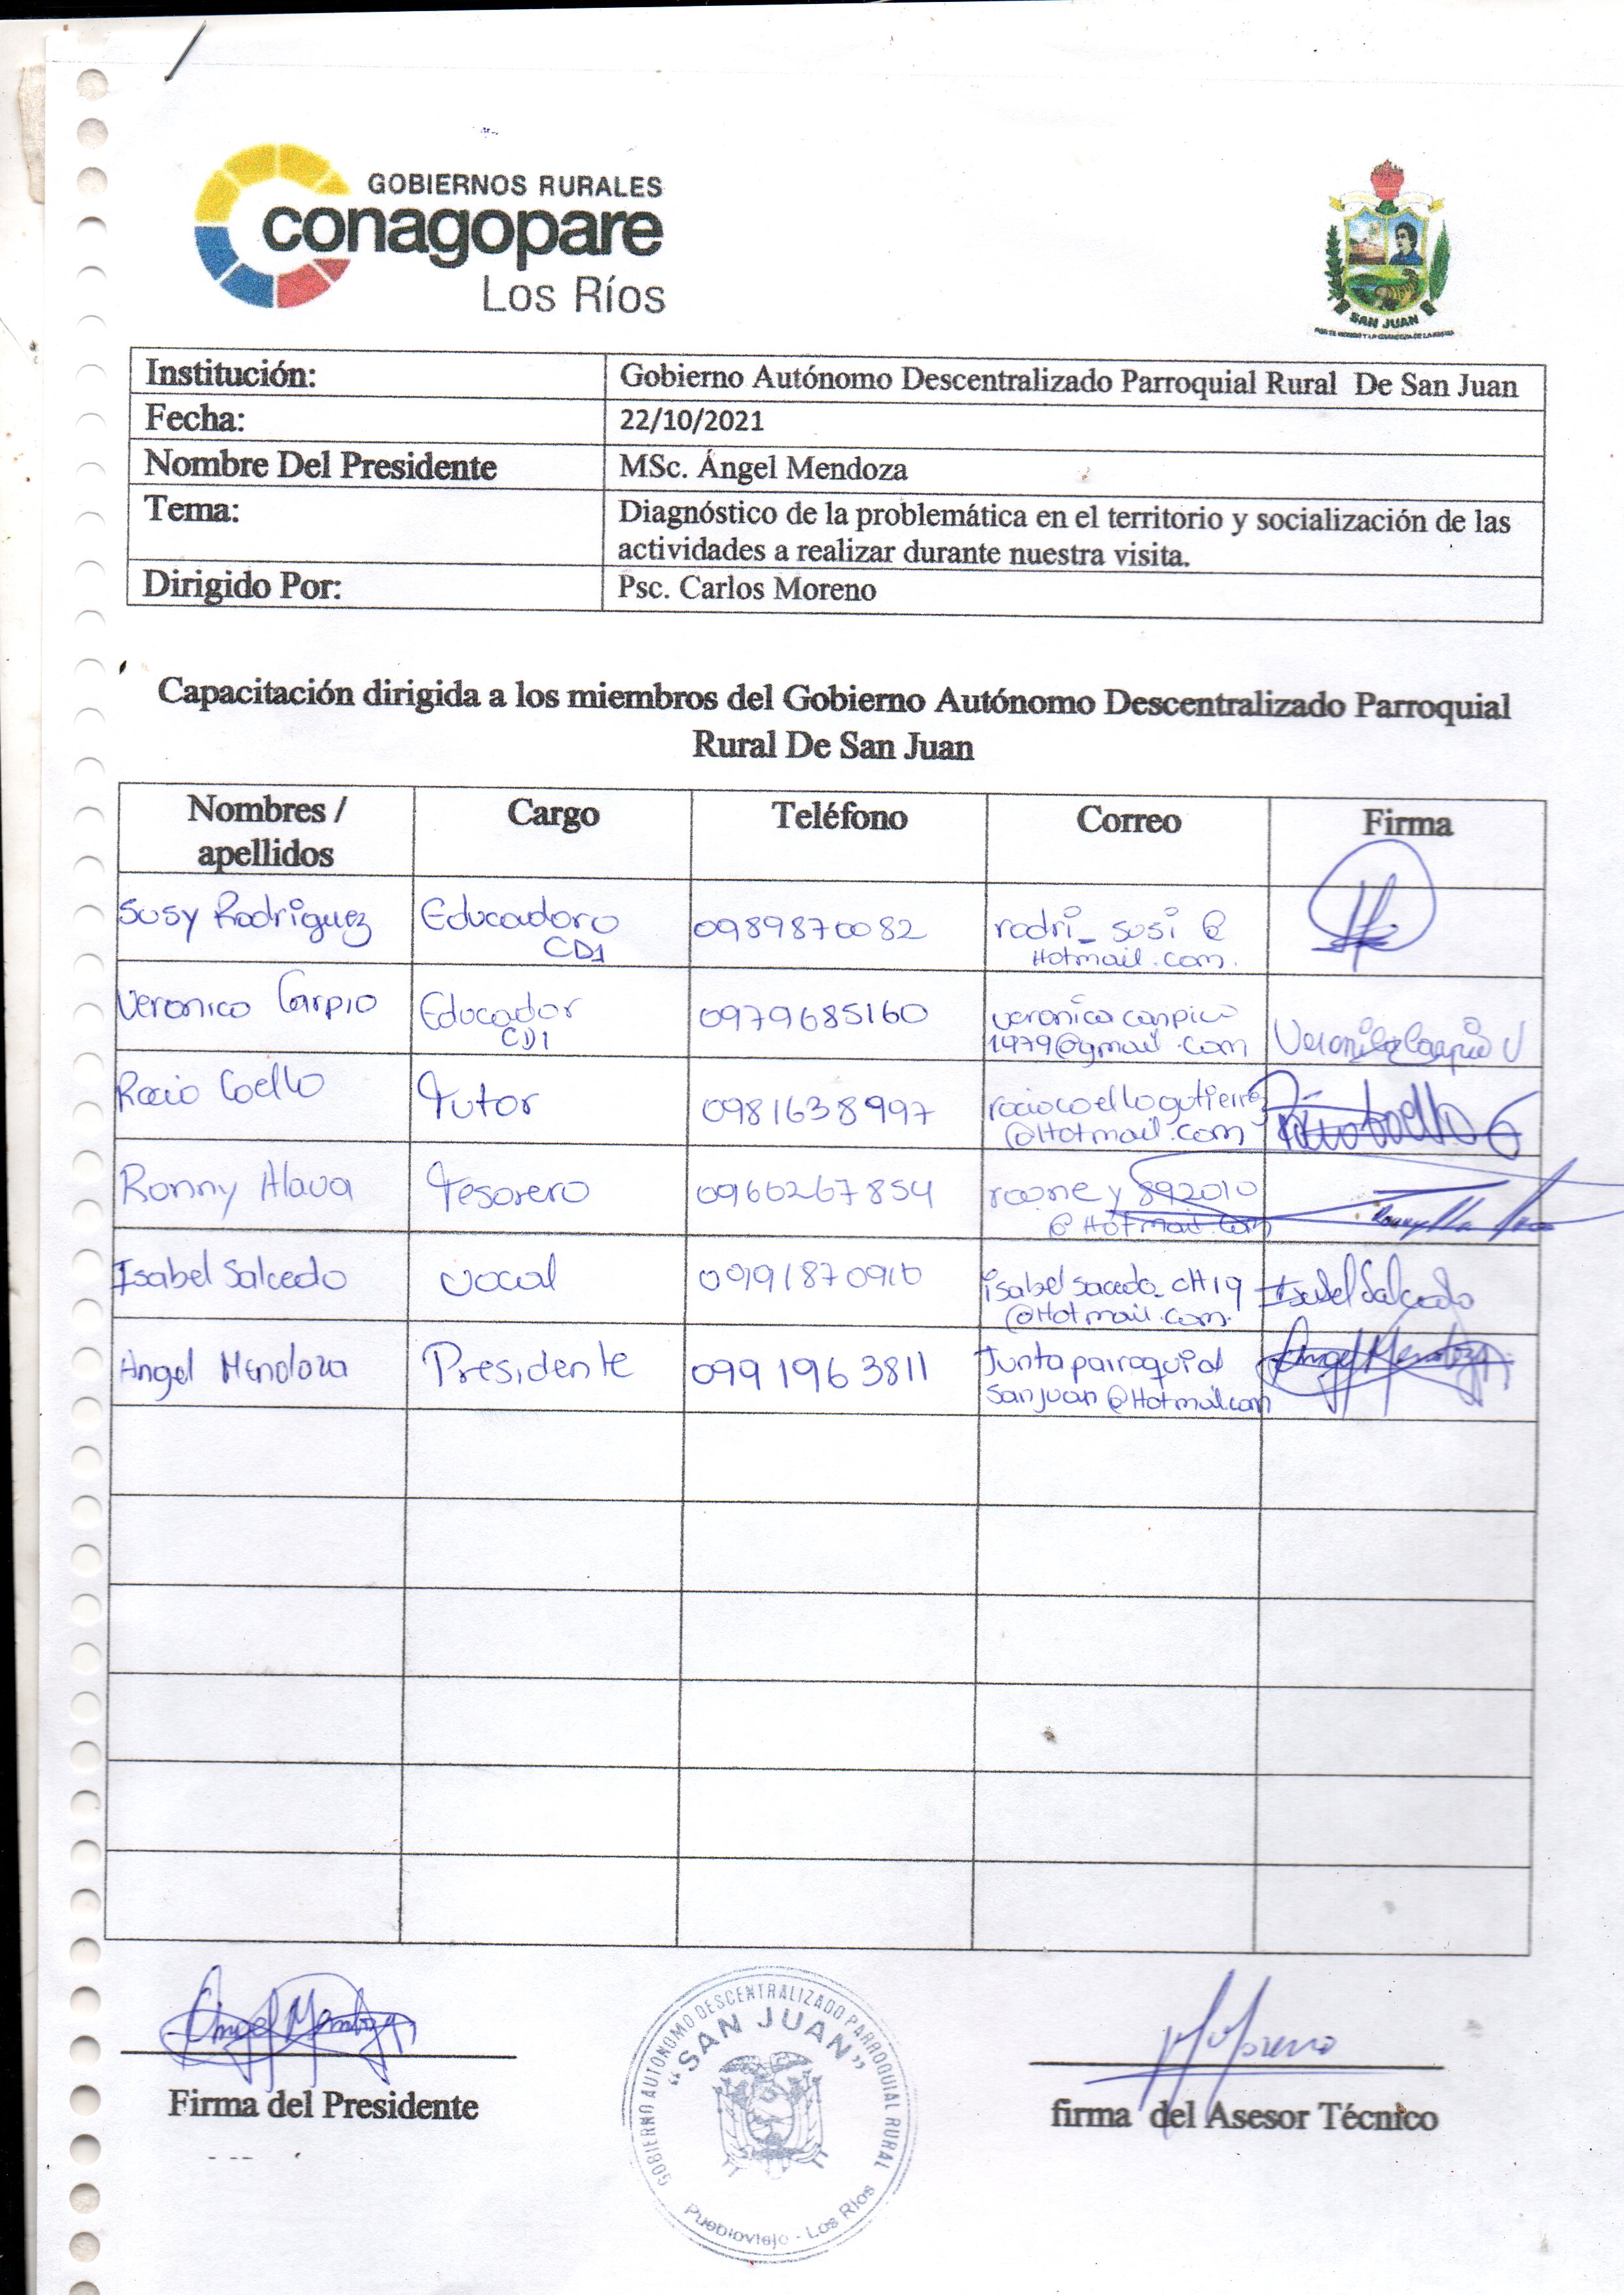 GOBIERNOS RURALES
conagopare
Los Ríos
SAN JUAN
Institución: Gobierno Autónomo Descentralizado Parroquial Rural De San Juan
Fecha: 22/10/2021
Nombre Del Presidente MSc. Ángel Mendoza
Tema: Diagnóstico de la problemática en el territorio y socialización de las
actividades a realizar durante nuestra visita.
Dirigido Por: Psc. Carlos Moreno
Capacitación dirigida a los miembros del Gobierno Autónomo Descentralizado Parroquial
Rural De San Juan
Nombres / Cargo Teléfono Correo Firma
apellidos
Susy Rodriguez Educadora 0989870082 rodri_susi @
CD1 Hotmail.com.
Veronica Carpio Educador 0979685160 veronica carpio
CD1 1979@gmail.com Veronica Carpio V
Rocio Coello Tutor 0981638997 rociocoellogutierrez
@Hotmail.com Rocio Coello G
Ronny Alava Tesorero 0966267854 892010
@Hotmail.com
Isabel Salcedo vocal 0991870910 isabel sacedo_cH19 Isabel Salcedo
@Hotmail.com.
Angel Mendoza Presidente 0991963811 Junta parroquial Angel Mendoza
sanjuan@Hotmail.com
Angel Mendoza
Moreno
Firma del Presidente
firma del Asesor Técnico
GOBIERNO AUTONOMO DESCENTRALIZADO PARROQUIAL RURAL
"SAN JUAN"
Puebloviejo - Los Ríos